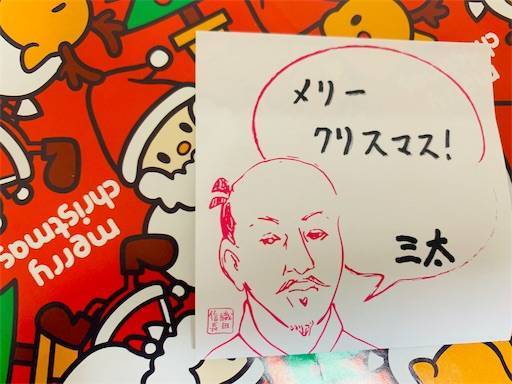 メリー
クリスマス!
三太
織田
信長
merry
christmas
merry
christmas